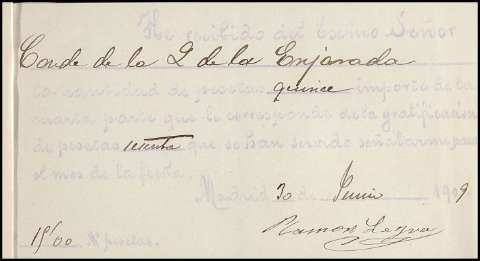 He recibido del Excmo Señor
Conde de la Q de la Enjarada
la cantidad de pesetas quince importe de la
cuarta parte que le corresponde de la gratificación
de pesetas sesenta que se han servido señalarme para
el mes de la fecha.
Madrid 30 de Junio 1909
Ramon Leyva
15'00 pesetas.